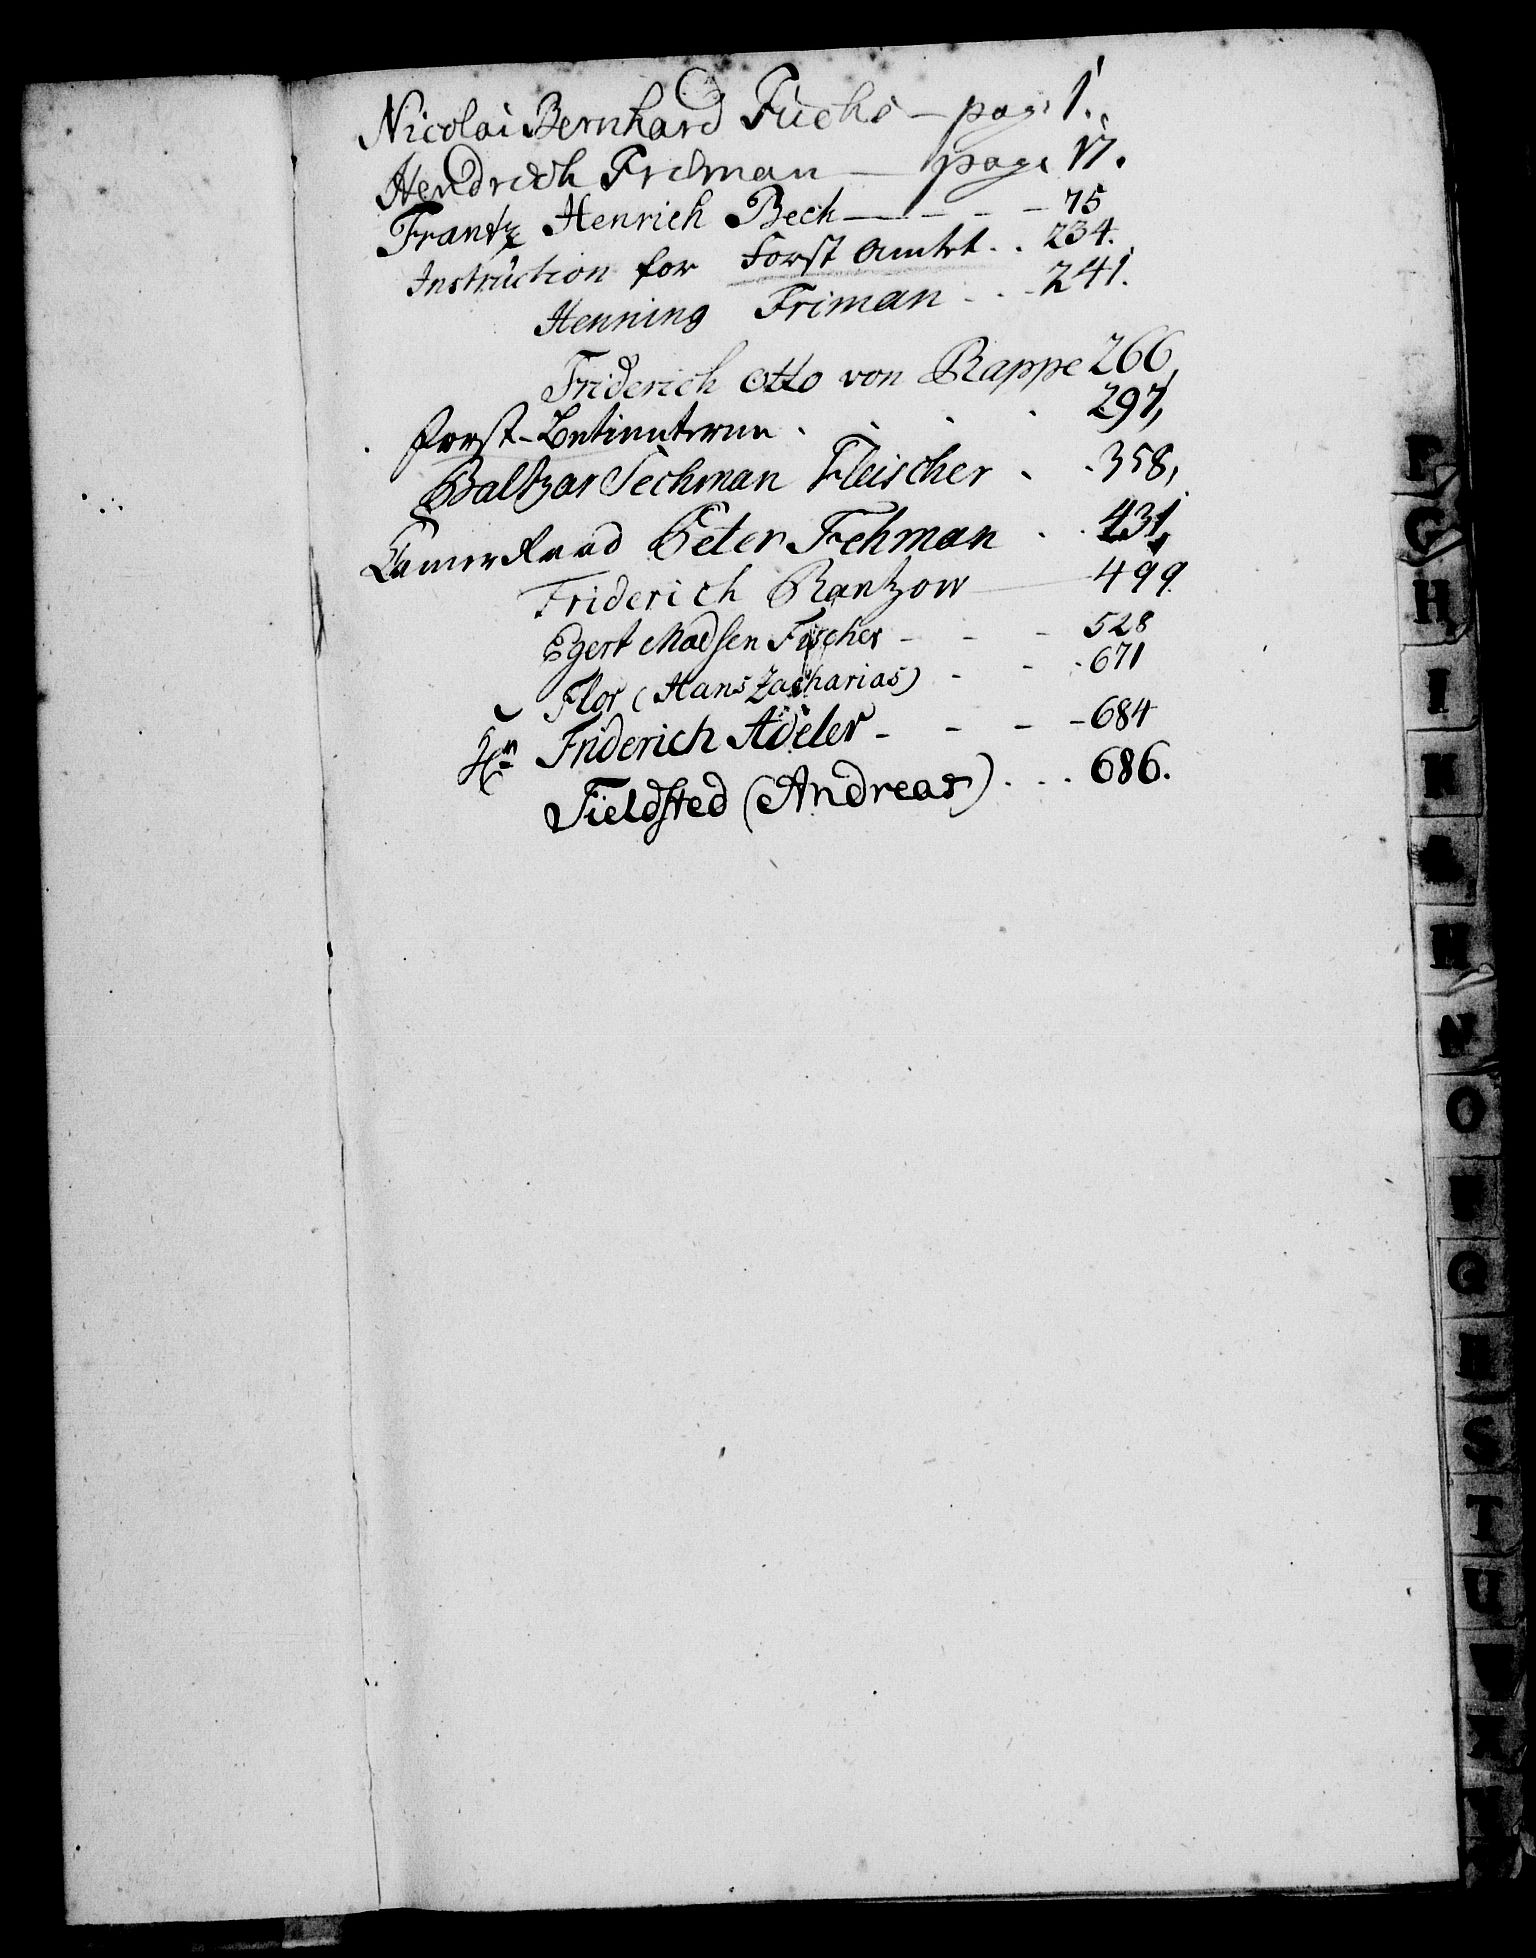 Nicolai Bernhard Fuchs — page 1.
Hendrich Friman — page 17.
Frantz Henrich Bech — - - - 75
Instruction for Forst Amtet . . 234.
Henning Friman . . . 241.
Friderich Otto von Rappe 266,
Forst-Betienterne . . . . 297,
Baltzar Sechman Fleischer . . 358,
Camer Raad Peter Fehman . . 431,
Friderich Rantzow — 499.
Egert Madsen Fischer - - - 528
Flor (Hans Zacharias) - - . 671
Hr Friderich Adeler - - - - 684
Fieldsted (Andreas) . . . 686.
F
G
H
I
K
L
M
N
O
P
Q
R
S
T
U
W
X
Y